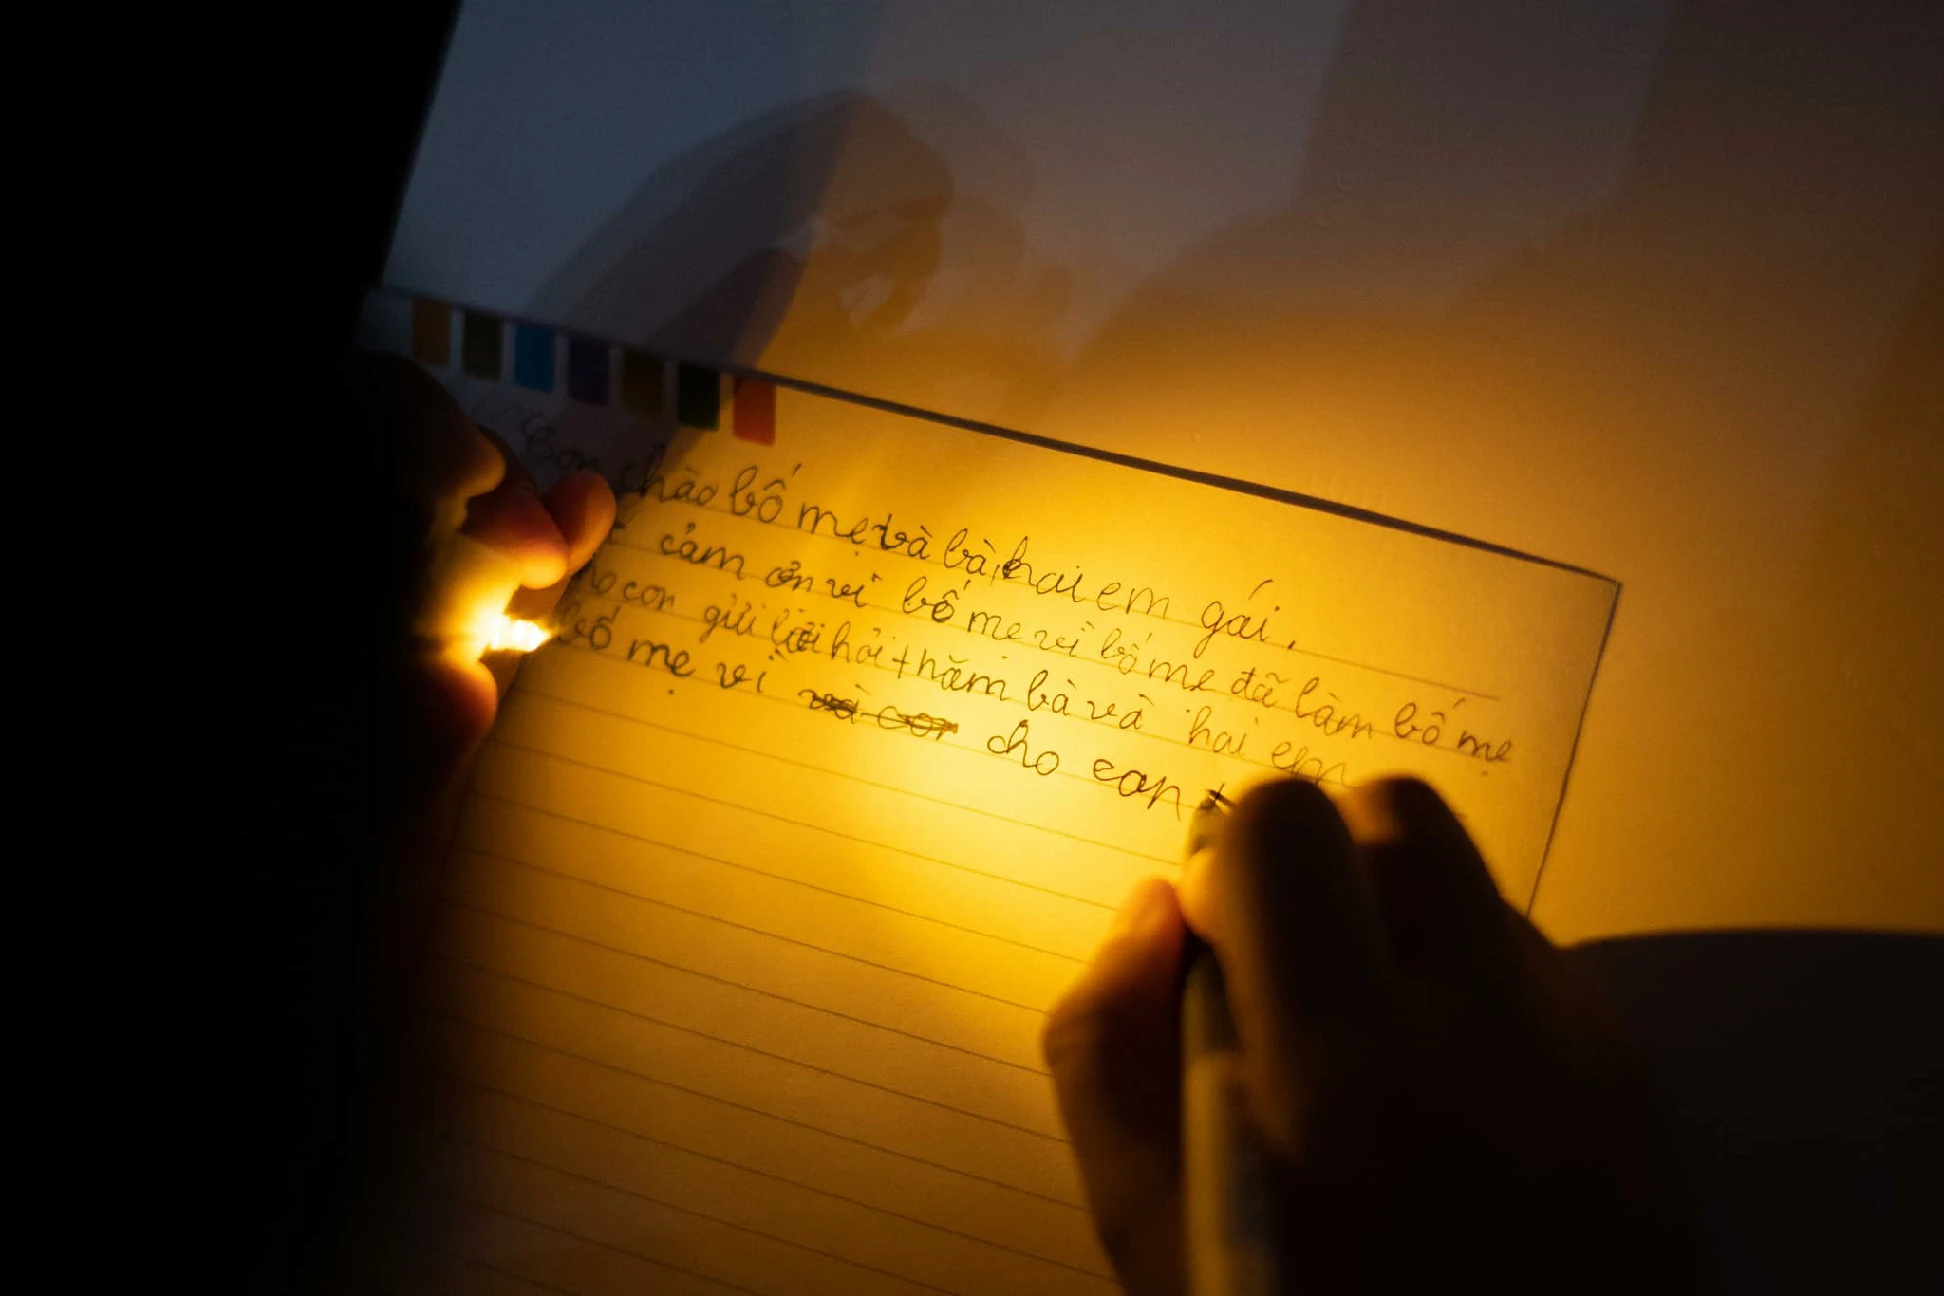 Con chào bố mẹ và bà, hai em gái.
cảm ơn vì bố mẹ vì bố mẹ đã làm bố mẹ
cho con gửi lời hỏi thăm bà và hai em
bố mẹ vì và con cho con t